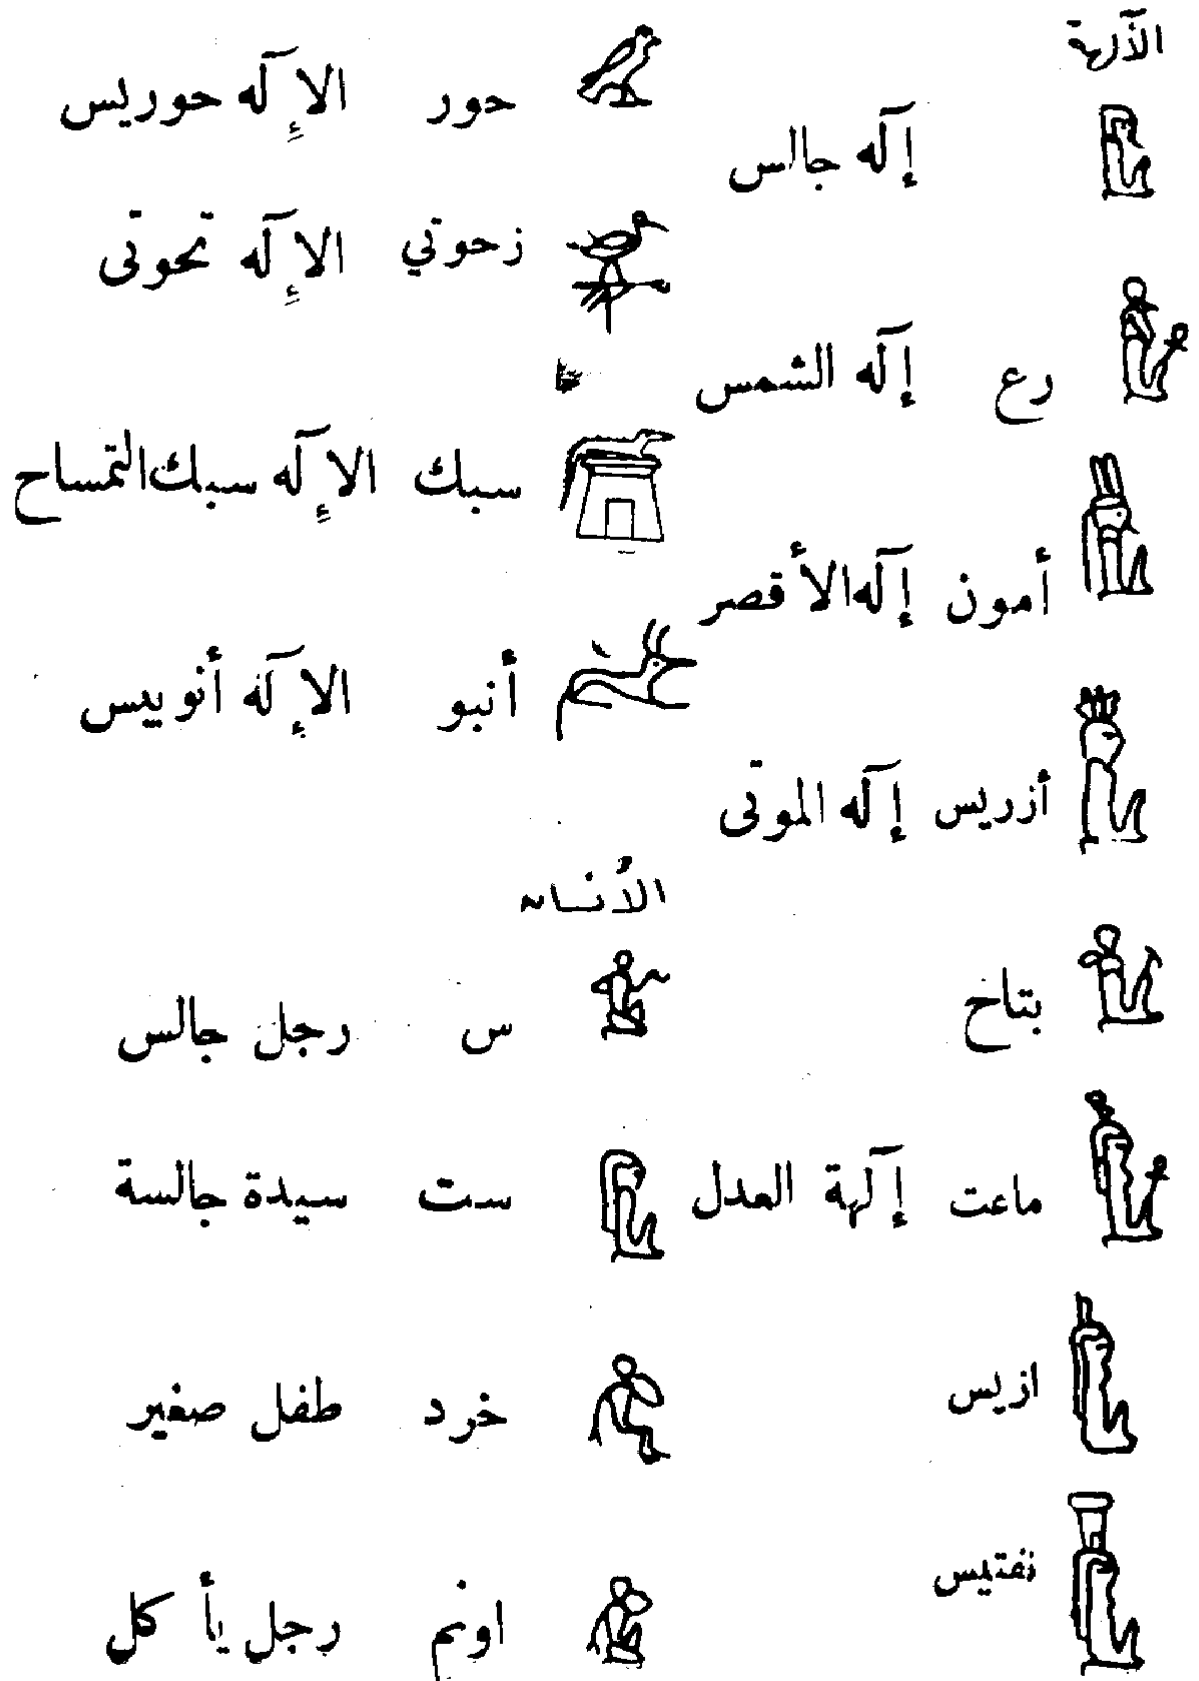 الآلهة
إله جالس
رع إله الشمس
أمون إله الأقصر
أزريس إله الموتى
بتاح
ماعت إلهة العدل
ازيس
نفتيس
حور الإله حوريس
زحوتي الإله تحوتى
سبك الإله سبك التمساح
أنبو الإله أنوبيس
الأنسان
س رجل جالس
ست سيدة جالسة
خرد طفل صغير
اونم رجل يأكل